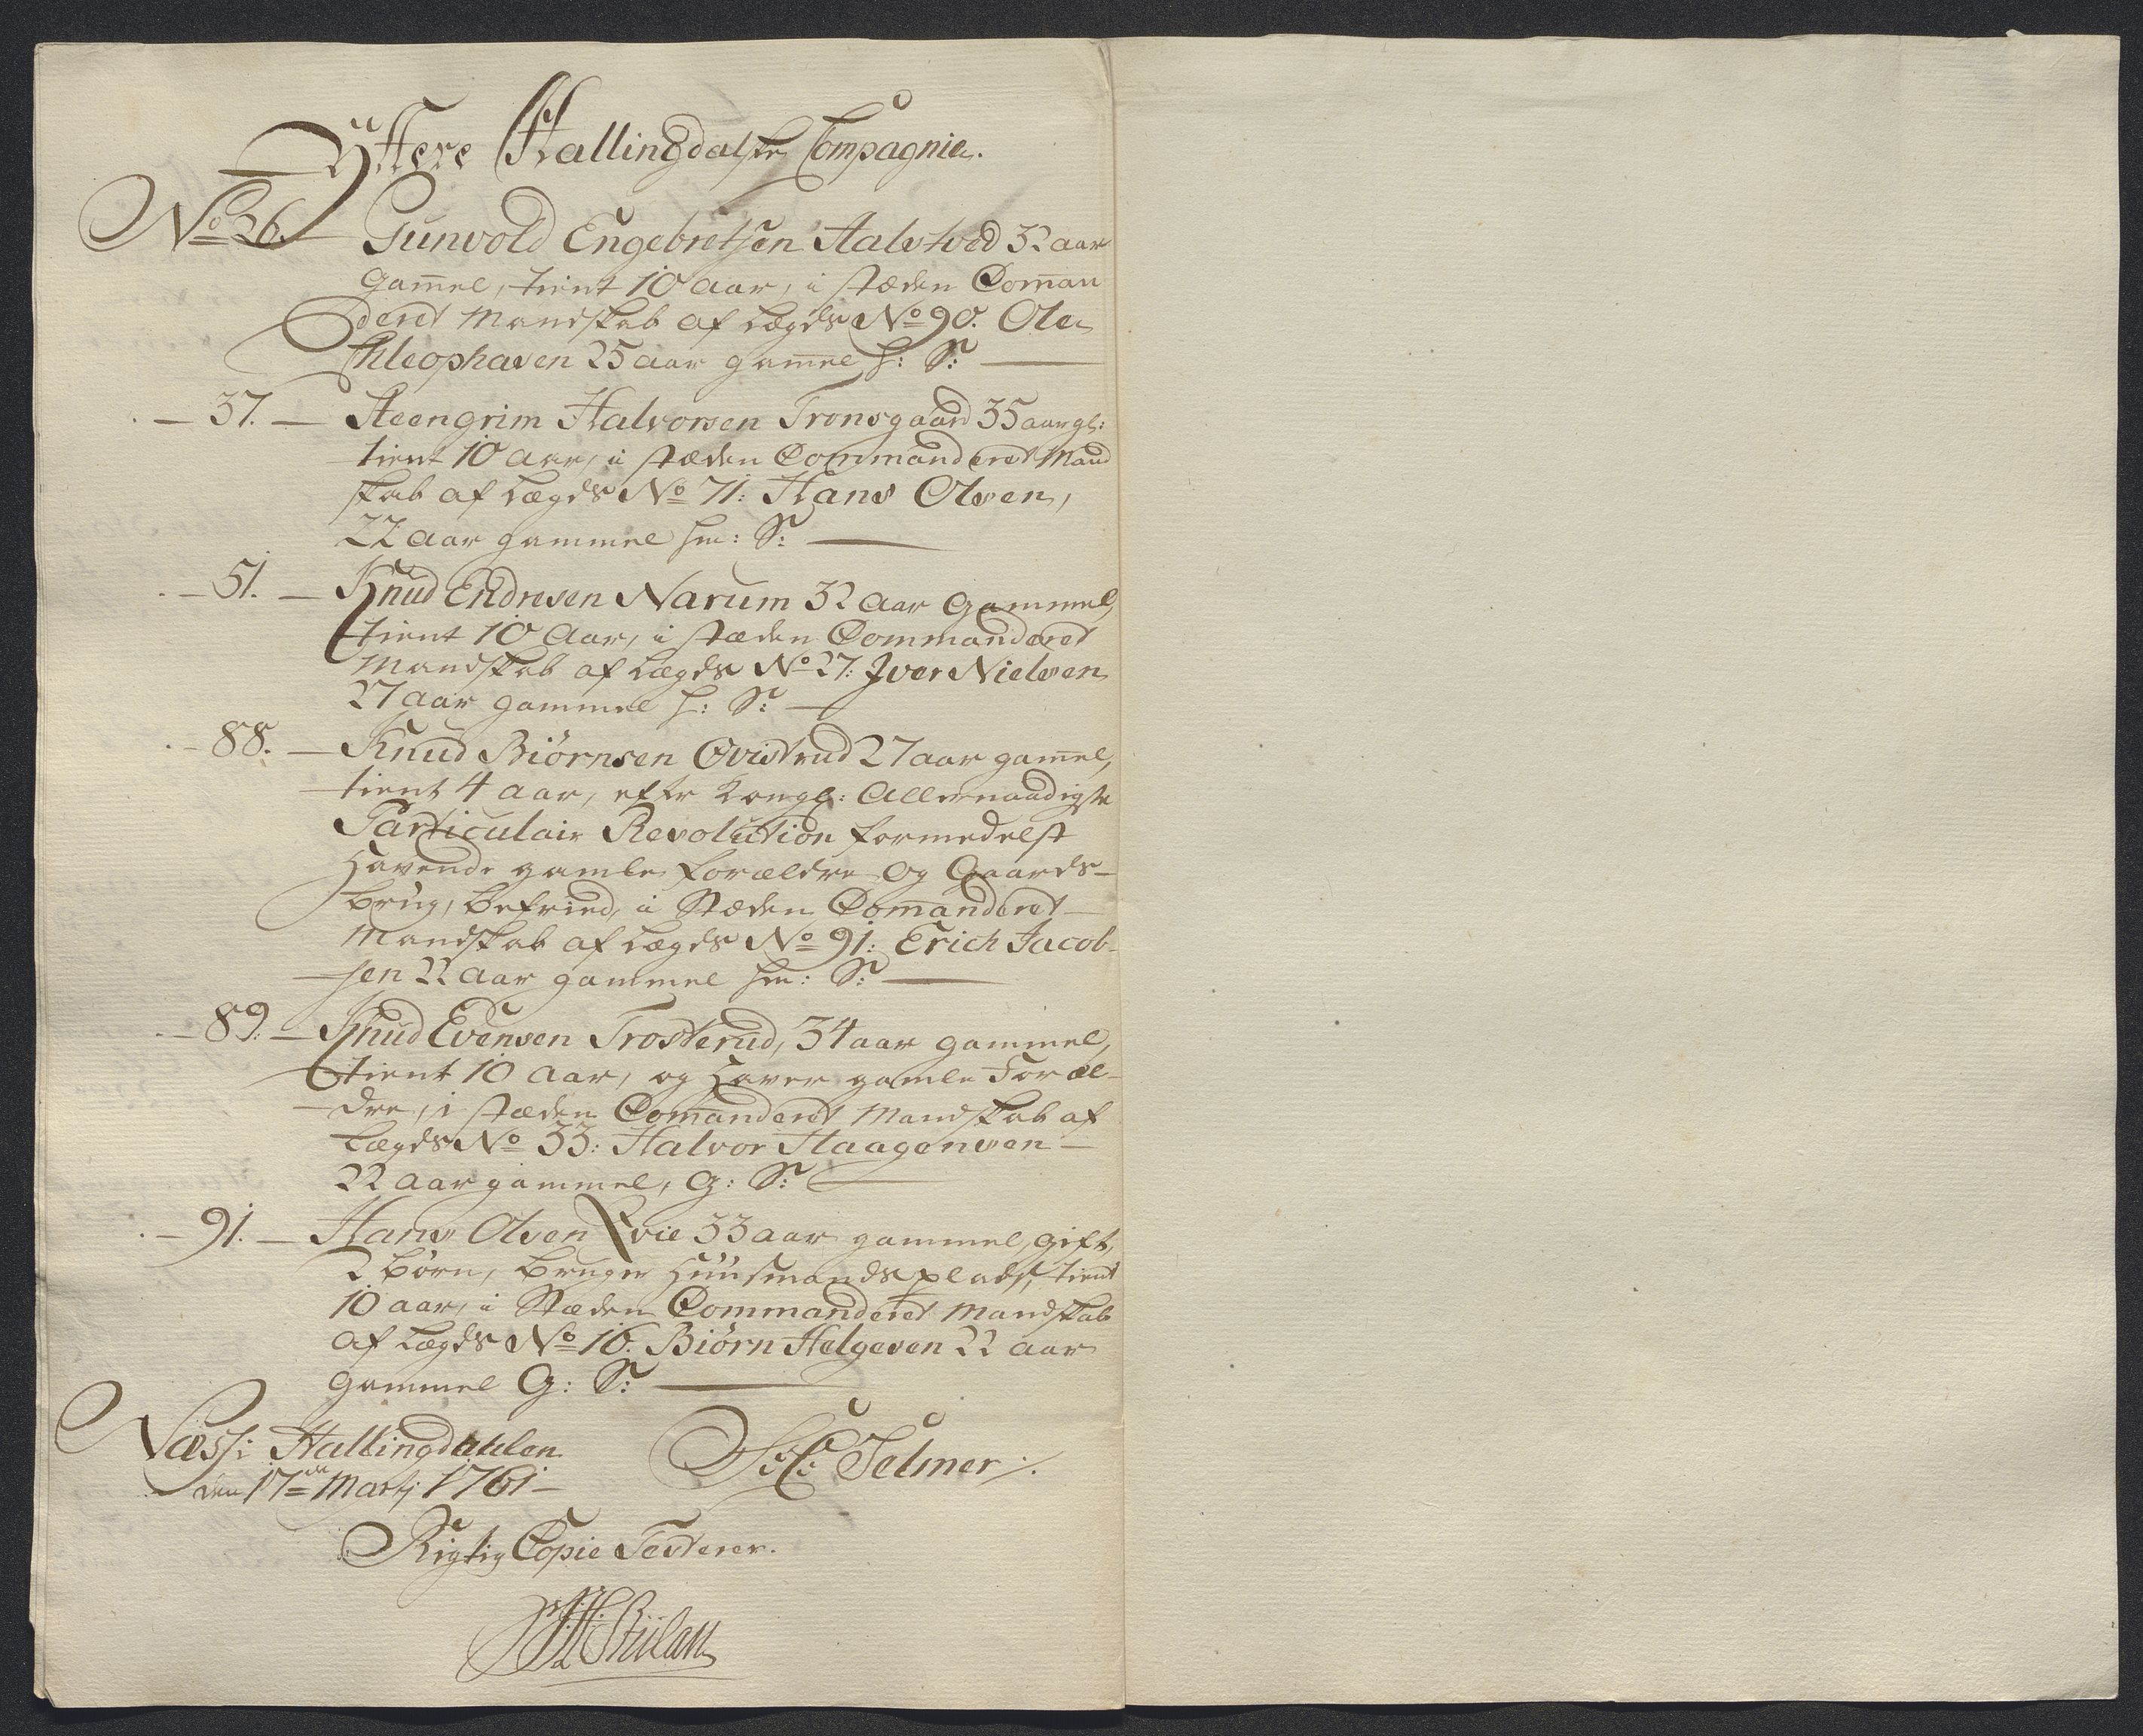 Ÿttere Hallingdalske Compagnie.
No 36. Gunvold Engebretsen Halstved 32 aar
gam̅el, tient 10 aar, i stæden Com̅an
deret Mandskab af Lægds No 90. Ole
Chleophasen 25 aar gam̅el h: S:
- 37. - Steengrim Halvorsen Tronsgaard 35 aar gl:
tient 10 aar, i stæden Commanderet Mand
skab af Lægds No 71: Hans Olsen,
22 aar gammel hm: S:
- 51. - Knud Endresen Narum 32 aar gammel,
tient 10 Aar, i stæden Commanderet
Mandskab af Lægds No 27: Iver Nielsen
27 aar gammel h: S:
- 88. - Knud Biörnsen Qvistrud 27 aar gam̅el,
tient 4 aar, efter Kongl: Allernaadigste
Particulair Resolution formedelst
Havende gamle forældre og Gaards-
brug, befried, i Stæden Com̅anderet
Mandskab af Lægds No 91: Erich Jacob-
sen 22 aar gammel hm: S:
- 89. - Knud Evensen Trosterud, 34 aar gammel,
tient 10 aar, og Haver gamle Foræl-
dre, i stæden Com̅anderet Mandskab af
Lægds No 33: Halvor Haagensen
22 aar gammel, G: S:
- 91. - Hans Olsen Evie 33 aar gammel, gift,
2 börn, bruger Huusmands plads, tient
10 aar, i Stæden Commanderet Mandskab
af Lægds No 16. Biörn Helgesen 22 aar
gammel G: S:
Næss i Hallingdahlen
den 17de Martj 1761
Selmer
Rigtig Copie Testerer.